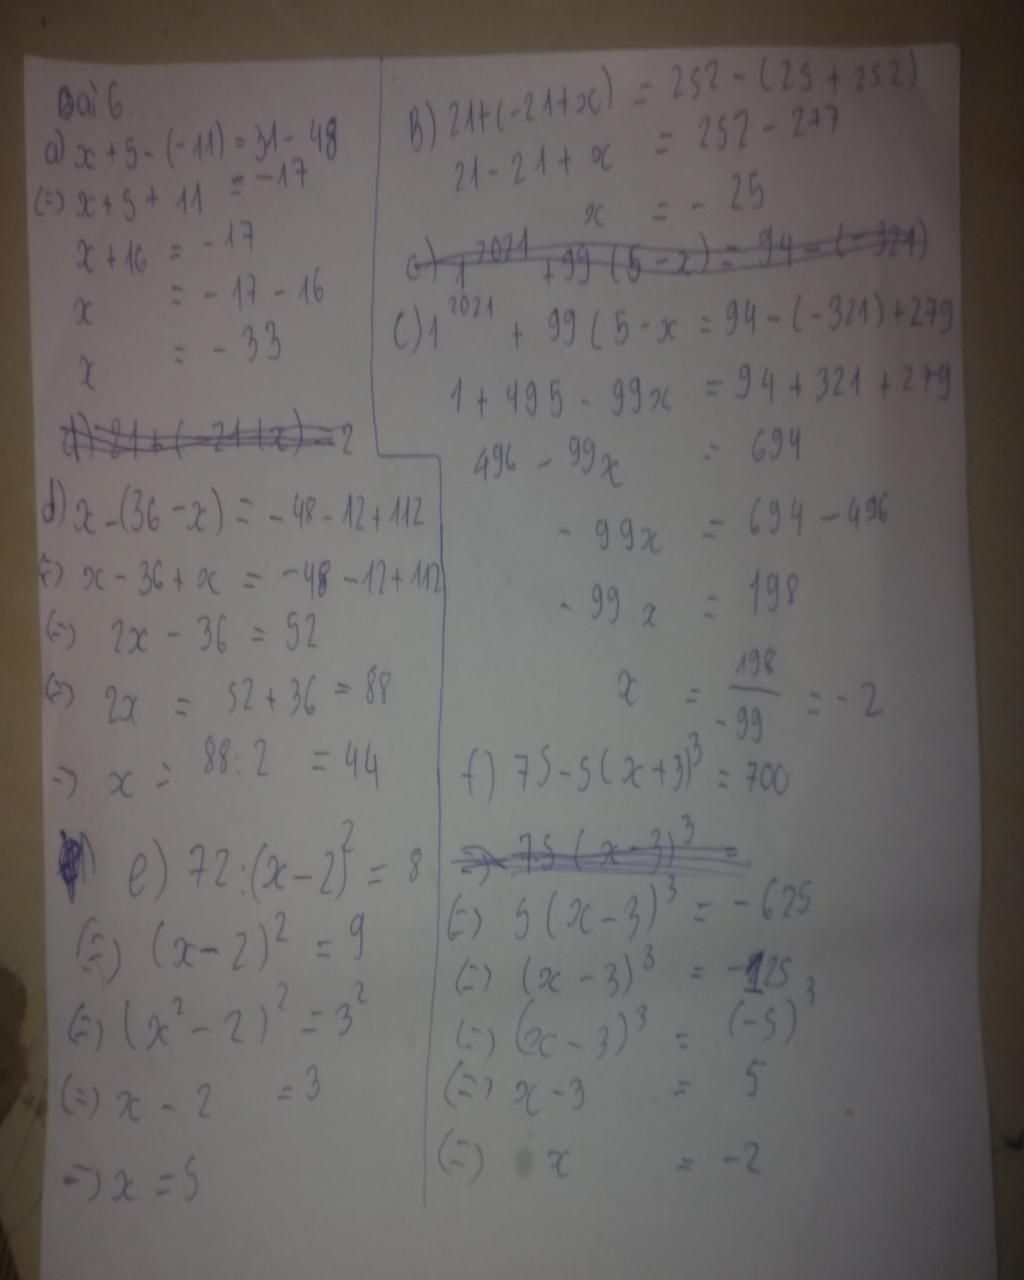 Bài 6.
a) x + 5 - (-11) = 31 - 48
(=) x + 5 + 11 = -17
x + 16 = -17
x = -17 - 16
x = -33
B) 21 + (-21 + x) = 252 - (25 + 252)
21 - 21 + x = 252 - 277
x = - 25
c) 1^2021 + 99 (5 - x) = 94 - (-321)
C) 1^2021 + 99 (5 - x = 94 - (-321) + 279
1 + 495 - 99x = 94 + 321 + 279
496 - 99x = 694
- 99x = 694 - 496
- 99 x = 198
x = 198/-99 = -2
d) 21 + (-21 + x) = 2
d) x - (36 - x) = -48 - 12 + 112
(=) x - 36 + x = -48 - 12 + 112
(=) 2x - 36 = 52
(=) 2x = 52 + 36 = 88
=) x = 88 : 2 = 44
e) 72 : (x - 2)^2 = 8
(=) (x - 2)^2 = 9
(=) (x^2 - 2)^2 = 3^2
(=) x - 2 = 3
=) x = 5
f) 75 - 5 (x + 3)^3 = 700
=) 75 (x - 3)^3 =
(=) 5 (x - 3)^3 = -625
(=) (x - 3)^3 = -125
(=) (x - 3)^3 = (-5)^3
(=) x - 3 = 5
(=) x = -2